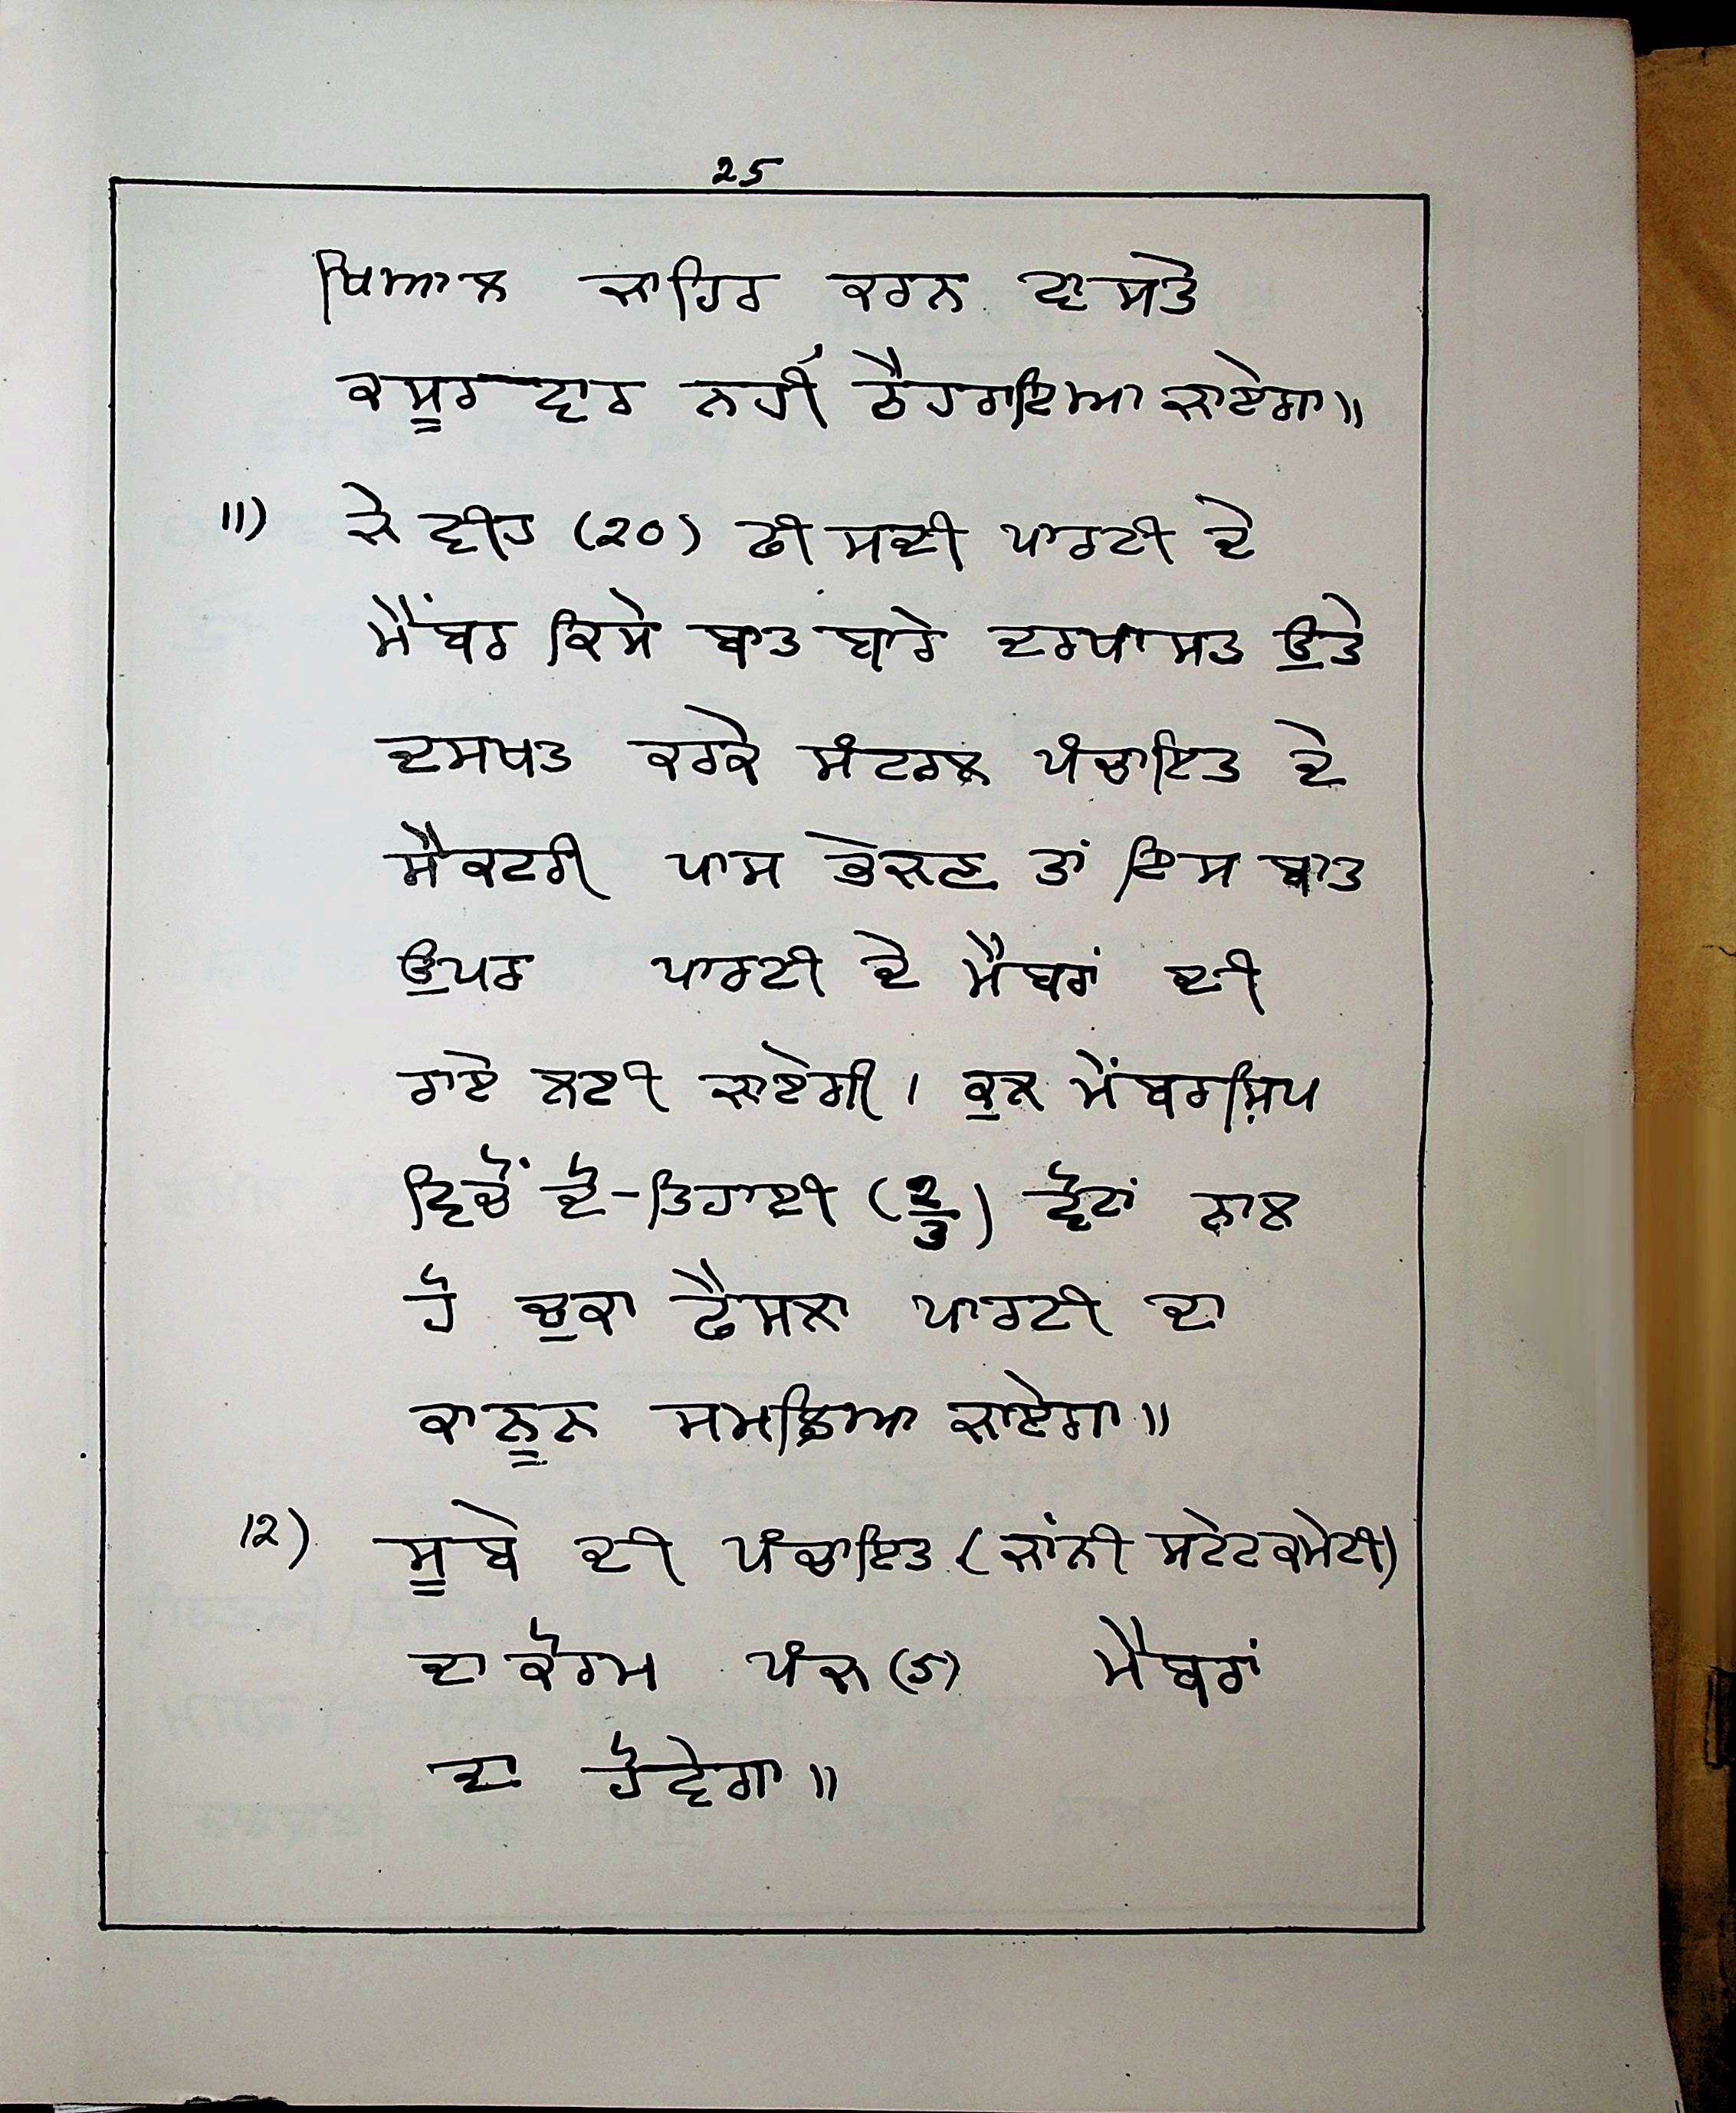 25
ਖਿਆਲ ਜਾਹਿਰ ਕਰਨ ਵਾਸਤੇ
ਕਸੂਰਵਾਰ ਨਹੀਂ ਠੈਹਰਾਇਆ ਜਾਏਗਾ॥
11) ਜੇ ਵੀਹ (20) ਫੀਸਦੀ ਪਾਰਟੀ ਦੇ
ਮੈਂਬਰ ਕਿਸੇ ਬਾਤ ਬਾਰੇ ਦਰਖਾਸਤ ਉਤੇ
ਦਸਖਤ ਕਰਕੇ ਸੰਟਰਲ ਪੰਚਾਇਤ ਦੇ
ਸੈਕਟਰੀ ਪਾਸ ਭੇਜਣ ਤਾਂ ਇਸ ਬਾਤ
ਉਪਰ ਪਾਰਟੀ ਦੇ ਮੈਬਰਾਂ ਦੀ
ਰਾਏ ਲਈ ਜਾਏਗੀ। ਕੁਲ ਮੇਂਬਰਸ਼ਿਪ
ਵਿਚੋਂ ਦੋ-ਤਿਹਾਈ (2/3) ਵੋਟਾਂ ਨਾਲ
ਹੋ ਚੁਕਾ ਫੈਸਲਾ ਪਾਰਟੀ ਦਾ
ਕਾਨੂਨ ਸਮਝਿਆ ਜਾਏਗਾ॥
12) ਸੂਬੇ ਦੀ ਪੰਚਾਇਤ (ਜਾਂਨੀ ਸਟੇਟ ਕਮੇਟੀ)
ਦਾ ਕੋਰਮ ਪੰਜ (5) ਮੈਬਰਾਂ
ਦਾ ਹੋਵੇਗਾ॥